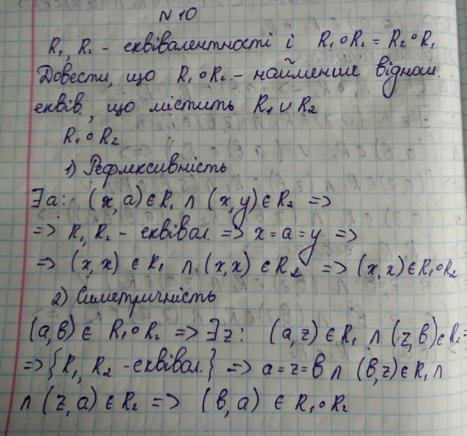 N 10
R₁, R₂ - еквівалентності і R₁∘R₂ = R₂∘R₁
Довести, що R₁∘R₂ - найменше віднош.
еквів., що містить R₁ ∪ R₂
R₁∘R₂
1) Рефлексивність
∃a: (x, a) ∈ R₁ ∧ (x, y) ∈ R₂ =>
=> R₁, R₂ - еквівал. => x = a = y =>
=> (x, x) ∈ R₁ ∧ (x, x) ∈ R₂ => (x, x) ∈ R₁∘R₂
2) Симетричність
(a, b) ∈ R₁∘R₂ => ∃z: (a, z) ∈ R₁ ∧ (z, b) ∈ R₂ =
=> {R₁, R₂ - еквівал.} => a = z = b ∧ (b, z) ∈ R₁ ∧
∧ (z, a) ∈ R₂ => (b, a) ∈ R₁∘R₂